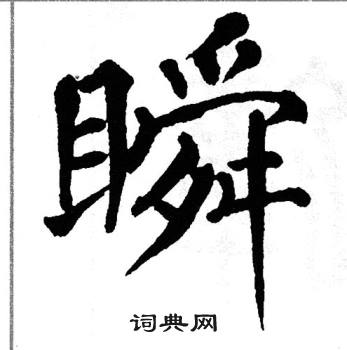 瞬
词典网